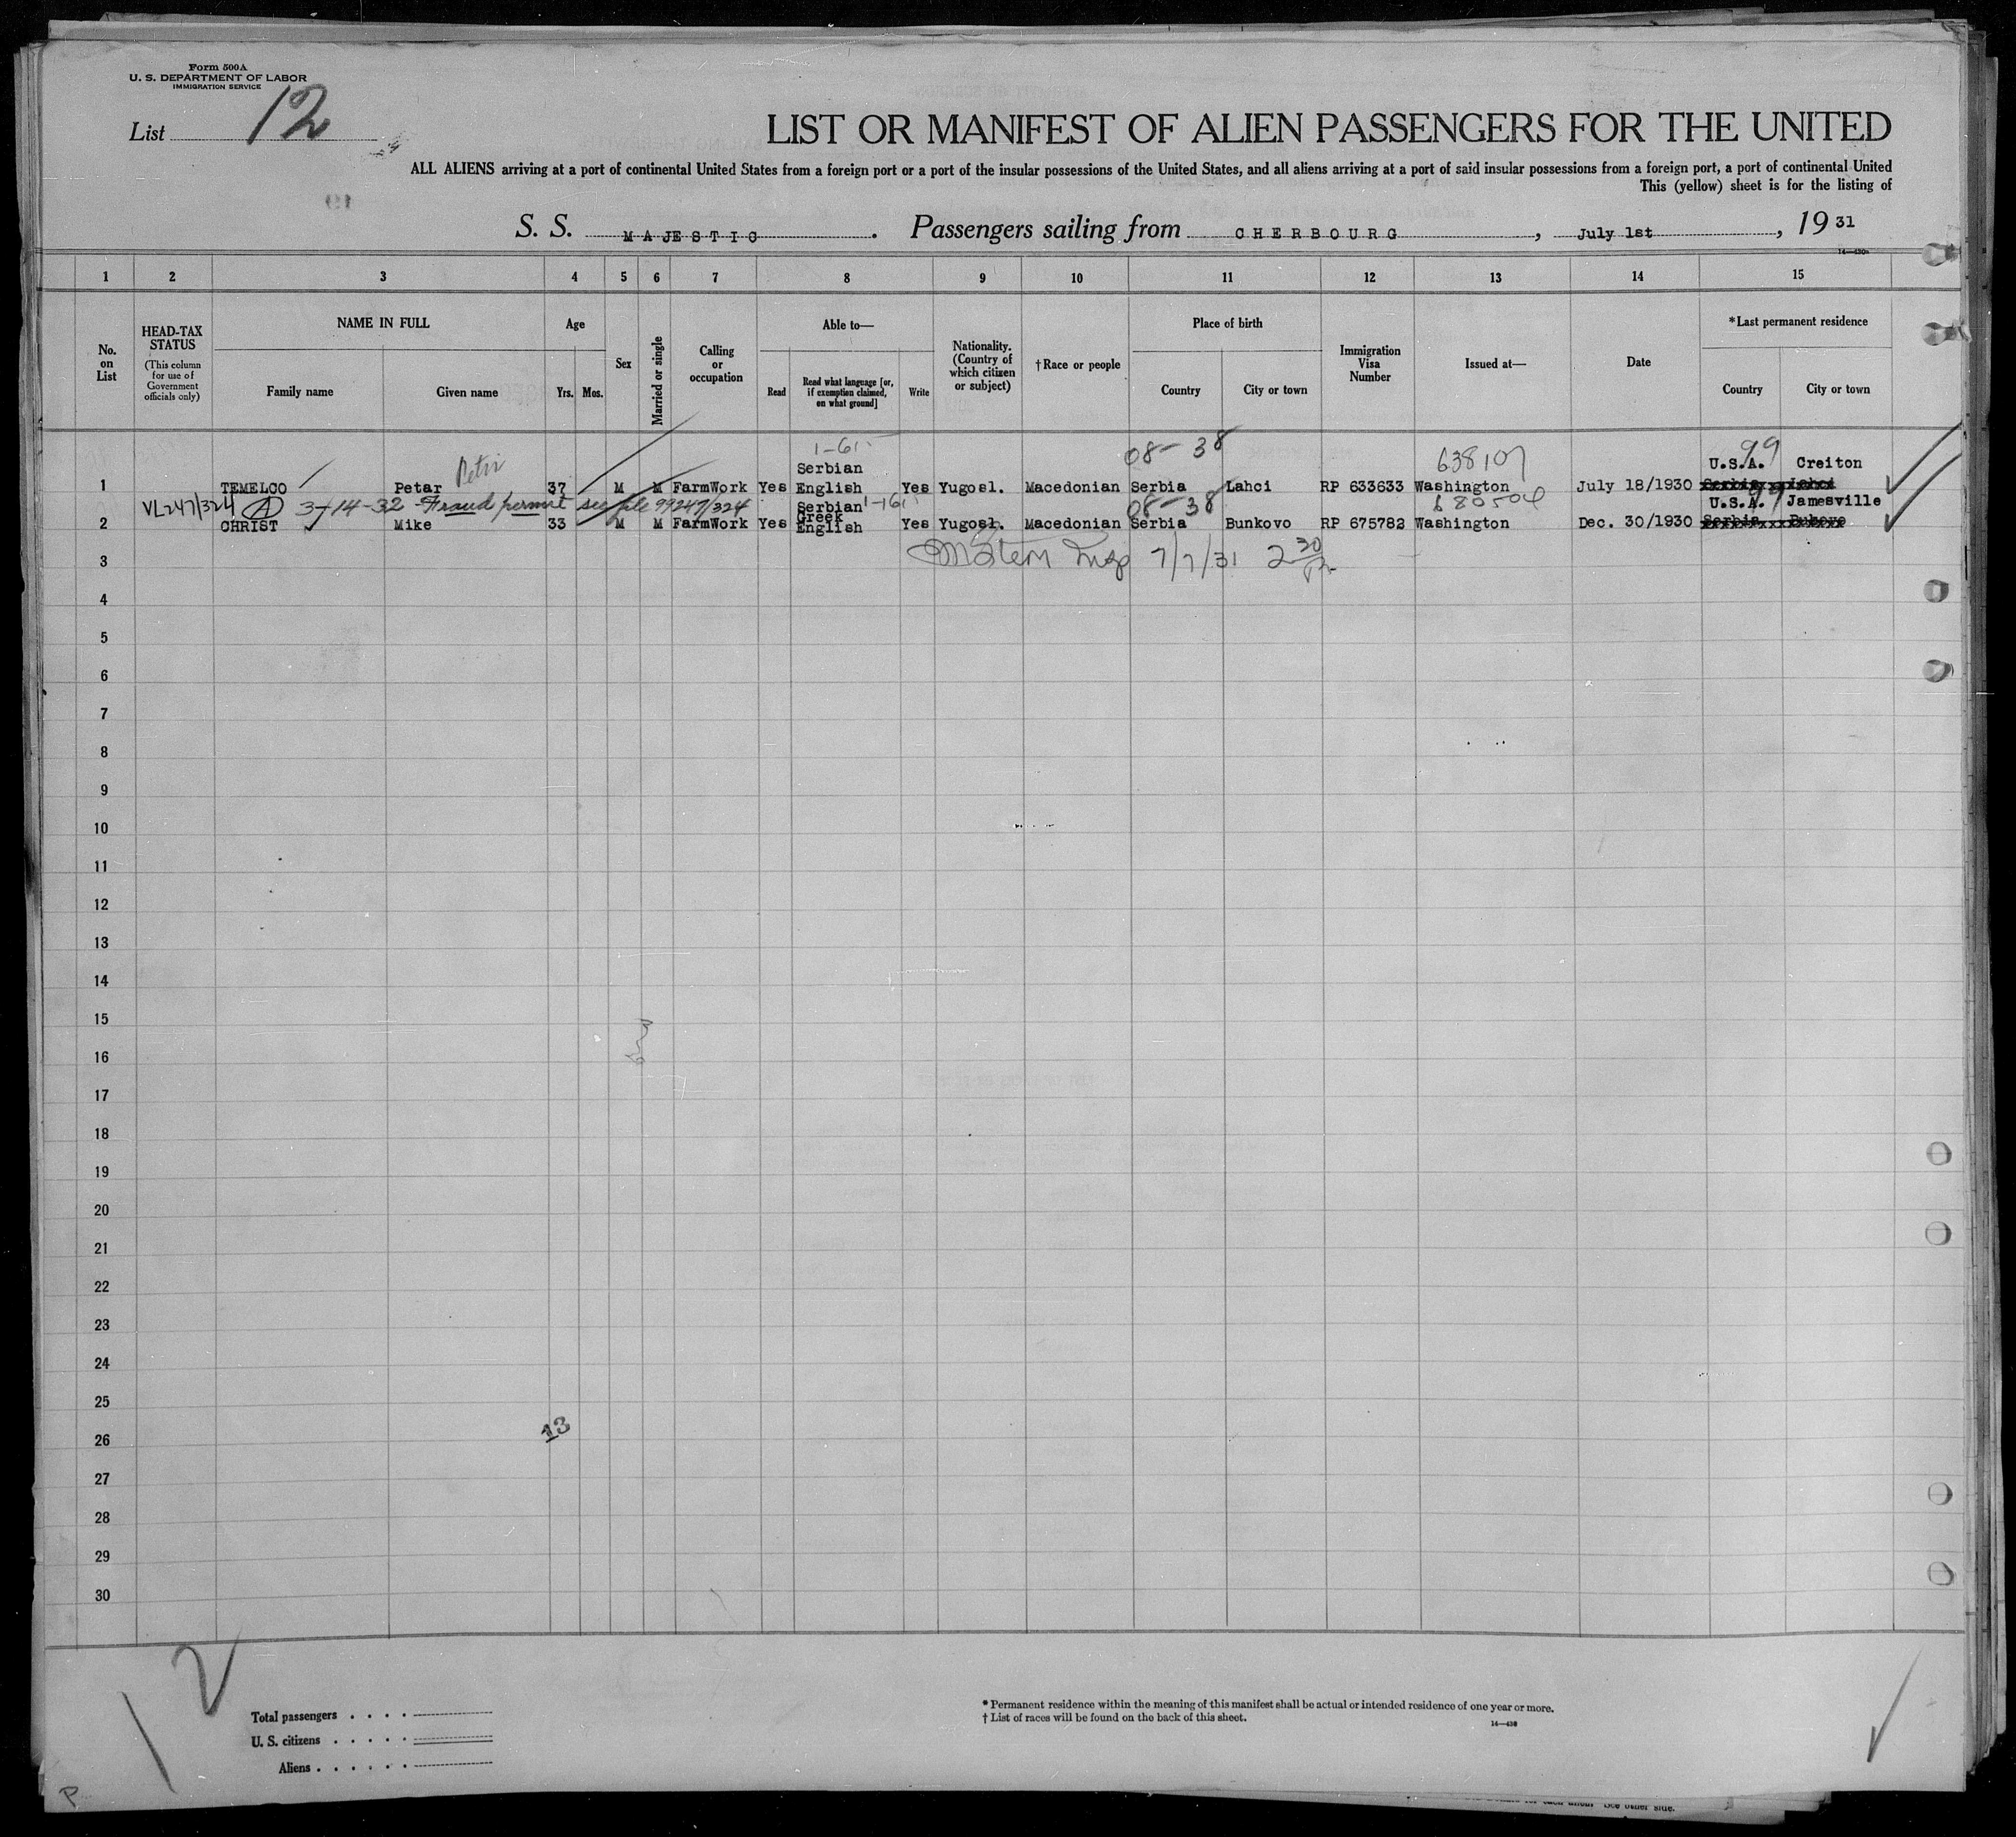 Form 500A
U. S. DEPARTMENT OF LABOR
IMMIGRATION SERVICE
List 12
LIST OR MANIFEST OF ALIEN PASSENGERS FOR THE UNITED
ALL ALIENS arriving at a port of continental United States from a foreign port or a port of the insular possessions of the United States, and all aliens arriving at a port of said insular possessions from a foreign port, a port of continental United
This (yellow) sheet is for the listing of
S. S. MAJESTIC. Passengers sailing from CHERBOURG, July 1st, 19 31
1 2 3 4 5 6 7 8 9 10 11 12 13 14 15
No. on List
HEAD-TAX STATUS
(This column for use of Government officials only)
NAME IN FULL
Family name Given name
Age
Yrs. Mos.
Sex
Married or single
Calling or occupation
Able to—
Read
Read what language [or, if exemption claimed, on what ground]
Write
Nationality. (Country of which citizen or subject)
†Race or people
Place of birth
Country City or town
Immigration Visa Number
Issued at—
Date
*Last permanent residence
Country City or town
08-38 638107 99
Serbian U.S.A. Creiton
1 TEMELCO Petar 37 M M FarmWork Yes English Yes Yugosl. Macedonian Serbia Lahci RP 633633 Washington July 18/1930 Serbia Lahci
VL247/324 (A) 3-14-32 Fraud permit see file 99247/324 Serbian 08-38 680504 99 U.S.A. Jamesville
Greek
2 CHRIST Mike 33 M M FarmWork Yes English Yes Yugosl. Macedonian Serbia Bunkovo RP 675782 Washington Dec. 30/1930 Serbia Bukovo
3 7/7/31 2 30
4
5
6
7
8
9
10
11
12
13
14
15
16
17
18
19
20
21
22
23
24
25
26
13
27
28
29
30
Total passengers
U. S. citizens
Aliens
* Permanent residence within the meaning of this manifest shall be actual or intended residence of one year or more.
† List of races will be found on the back of this sheet.
14—430
P
See other side.